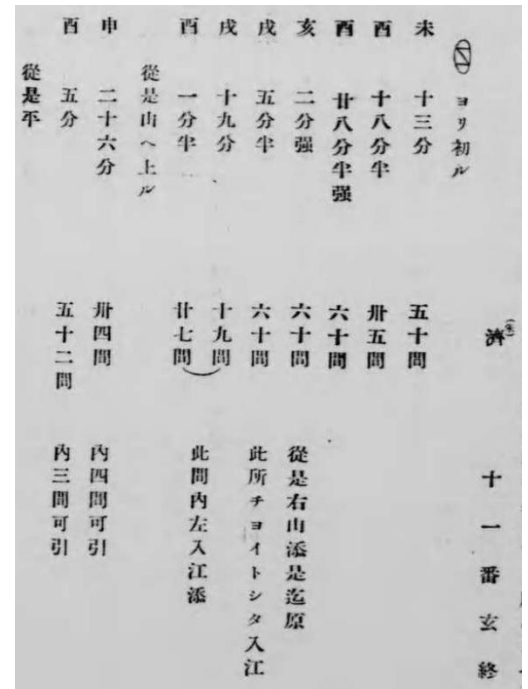 濟 十一番玄終
ヨリ初ル
未 十三分 五十間
酉 十八分半 卅五間
酉 廿八分半强 六十間
亥 二分强 六十間 從是右山添是迄原
戌 五分半 六十間 此所チヨイトシタ入江
戌 十九分 十九間
酉 一分半 廿七間 此間內左入江添
從是山へ上ル
申 二十六分 卅四間 內四間可引
酉 五分 五十二間 內三間可引
從是平